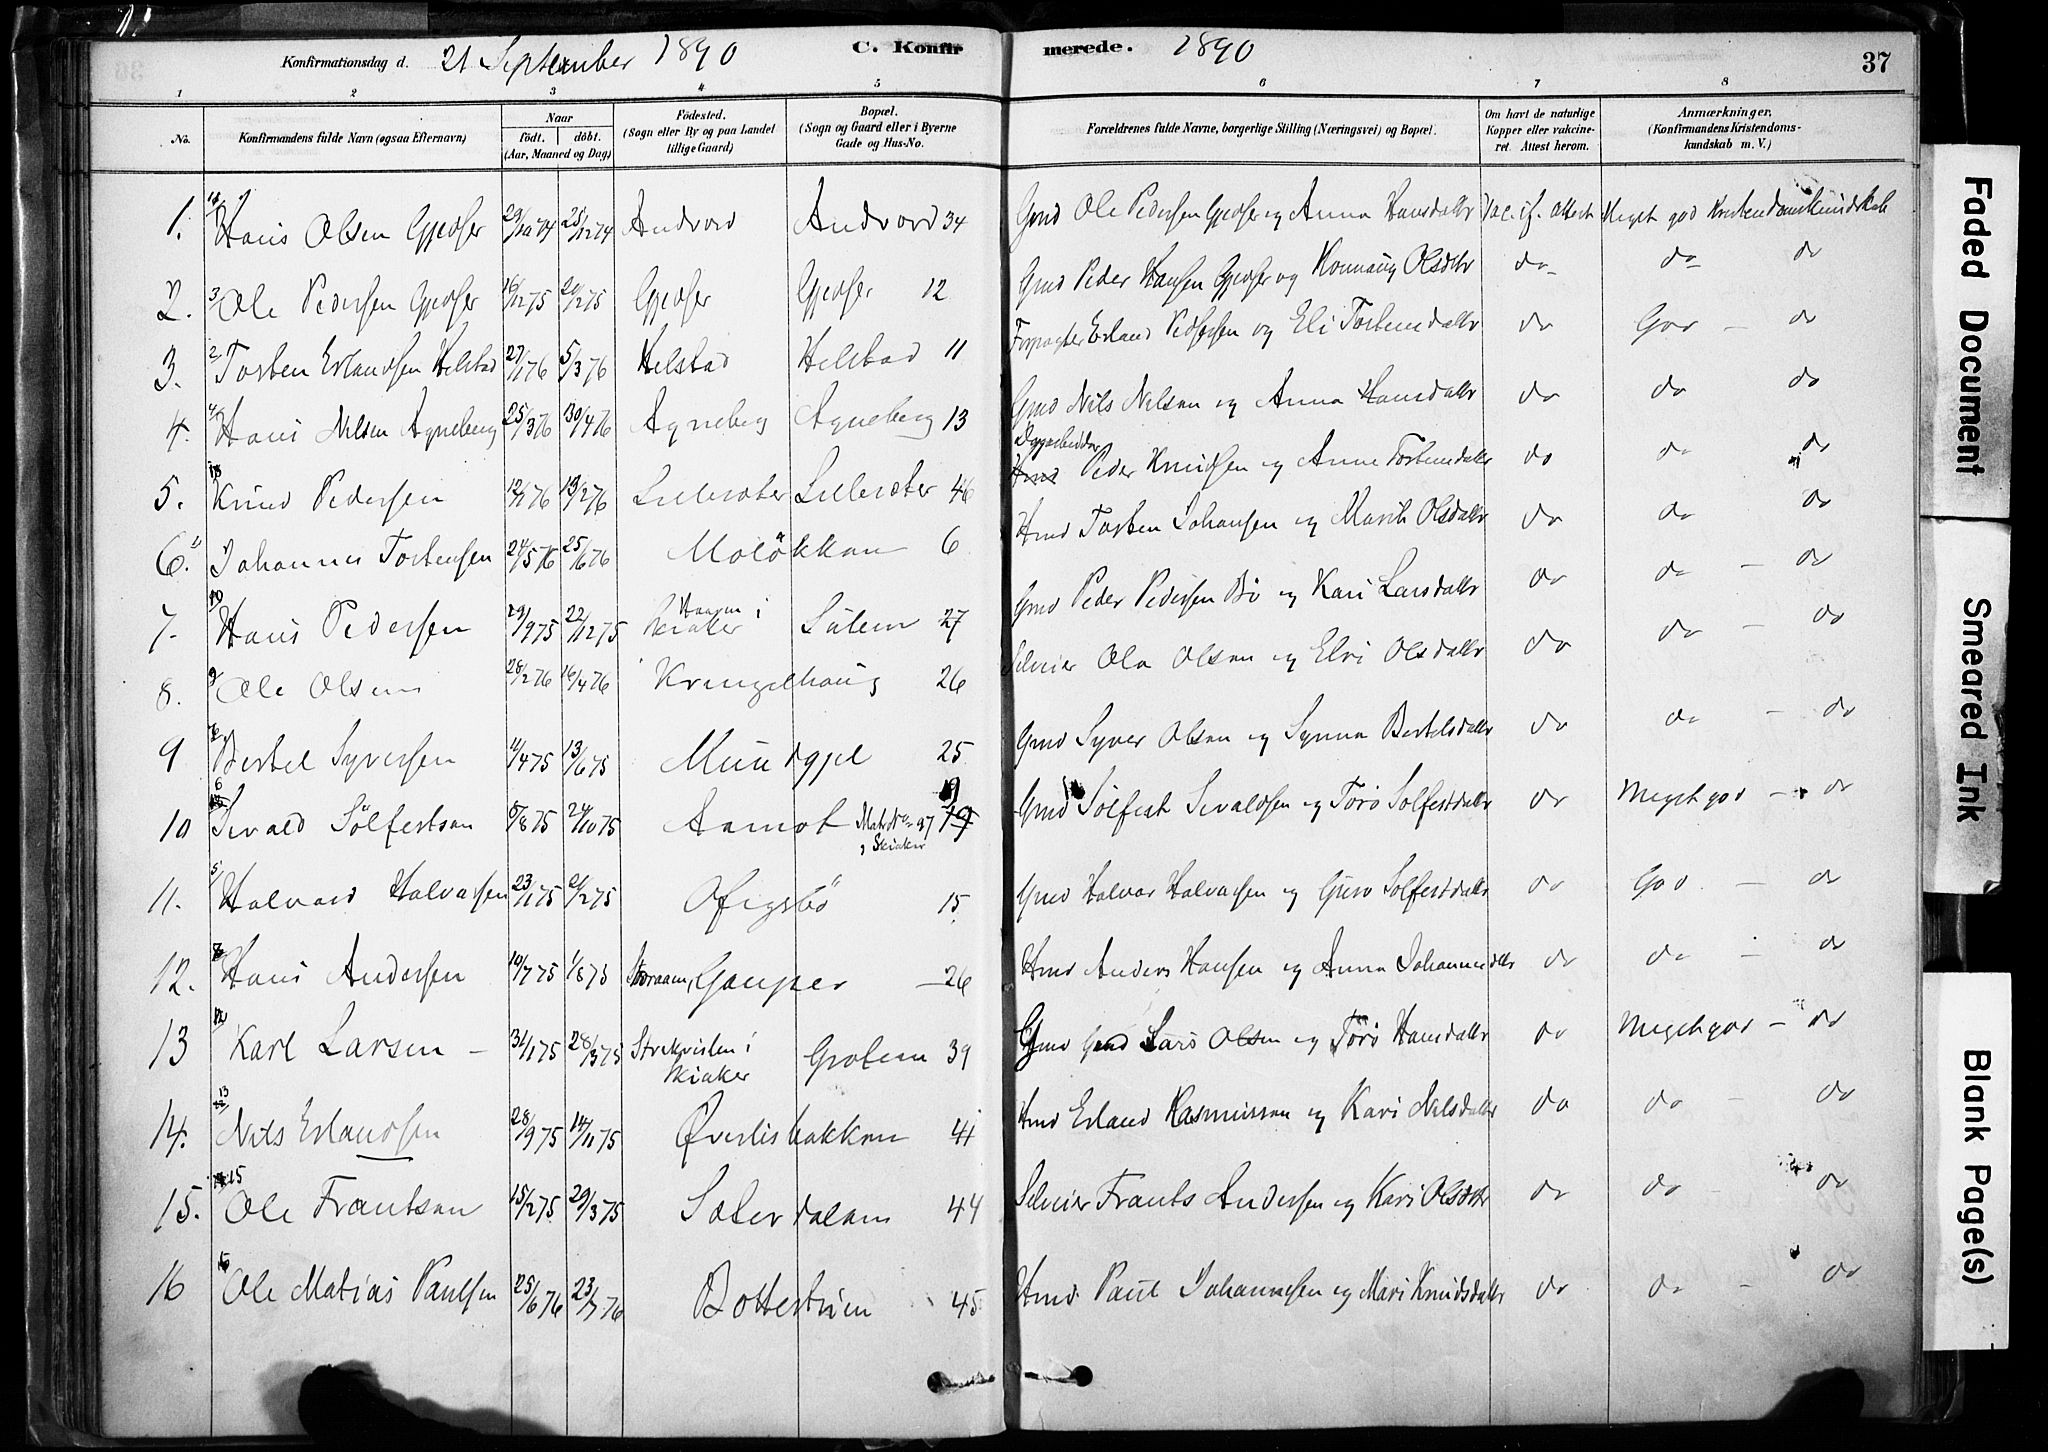 Konfirmationsdag d. 21 September 1890 C. Konfirmerede. 1890 37
1 2 3 4 5 6 7 8
No. Konfirmandens fulde Navn (ogsaa Efternavn) Naar født. døbt. (Aar, Maaned og Dag) Fødested. (Sogn eller By og paa Landet tillige Gaard) Bopæl. (Sogn og Gaard eller i Byerne Gade og Hus-No. Forældrenes fulde Navne, borgerlige Stilling (Næringsvei) og Bopæl. Om havt de naturlige Kopper eller vakcineret. Attest herom. Anmærkninger. (Konfirmandens Kristendomskundskab m. V.)
1. Hans Olsen Gjedser 29/10 74 25/12 74 Andvord Andvord 34 Gmd Ole Pedersen Gjedser og Anna Hansdattr Vac. if. attest Meget god Kristendomskundskab
2. 3/ Ole Pedersen Gjedser 16/12 75 20/2 75 Gjedser Gjedser 12 Gmd Peder Hansen Gjedser og Ronnaug Olsdtr do do do
3. 2/ Torsten Erlandsen Helstad 27/1 76 5/3 76 Helstad Helstad 11 Forpagter Erland Pedersen og Eli Torstensdattr do God - do
4. 4/ Hans Nilsen Agneberg 25/3 76 30/4 76 Agneberg Agneberg 13 Gmd Nils Nilsen og Anna Hansdattr do do do
5. Knud Pedersen 12/1 76 13/2 76 Lillesæter Lillesæter 46 Dagarbeider Peder Knudsen og Anne Torstensdattr do do do
6. Johannes Torstensen 24/5 76 25/6 76 Moløkken 6 Hmd Torsten Johansen og Marit Olsdattr do do do
7. Hans Pedersen 29/9 75 22/12 75 Skiaker Sulem 27 Gmd Peder Pedersen Bø og Kari Larsdattr do do - do
8. 9/ Ole Olsen 28/2 76 16/4 76 Kringelhaug 26 Selveier Ola Olsen og Elvi Olsdattr do do - do
9 Bertel Syversen 11/4 75 13/6 75 Muudgjel 25 Gmd Syver Olsen og Synva Bertelsdattr do do - do
10 Sevald Sølfestsen 8/8 75 24/10 75 Aamot Matr No 97 Skiaker 19 Gmd Sølfest Sevaldsen og Torø Solfestdattr do Meget god - do
11. 5/ Halvard Halvarsen 23/1 75 21/2 75 Ofigsbø 15 Gmd Halvar Halvarsen og Guro Solfestdattr do God - do
12. Hans Andersen 10/7 75 1/8 75 Gauper 26 Hmd Anders Hansen og Anna Johannesdttr do do - do
13 12/ Karl Larsen - 31/1 75 28/3 75 Strekvisten i Skiaker Grotem 39 Gmd Gmd Lars Olsen og Torø Hansdattr do Meget god - do
14. 13/ Nils Erlandsen 28/9 75 14/11 75 Øverlisbakken 41 Hmd Erland Rasmussen og Kari Nilsdattr do do - do
15. 15 Ole Frantsen 15/2 75 29/3 75 Sæterdalen 44 Selveier Frants Andersen og Kari Olsdtr do do - do
16 Ole Matias Paulsen 25/6 76 23/7 76 Bottestuen 45 Hmd. Paul Johannesen og Mari Knudsdattr do do - do
Faded Document
Smeared Ink
Blank Page(s)